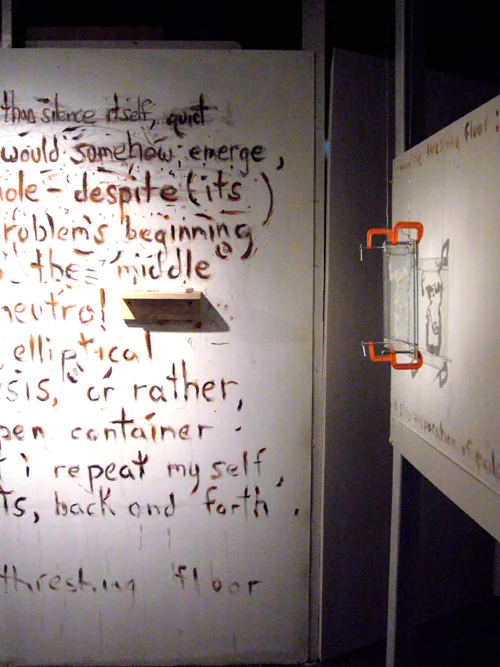 than silence itself, quiet
would somehow emerge,
hole - despite (its)
problem's beginning
the middle
neutral
elliptical
sis, or rather,
pen container.
i repeat my self,
ts, back and forth.
threshing floor
threshing floor:
separation of